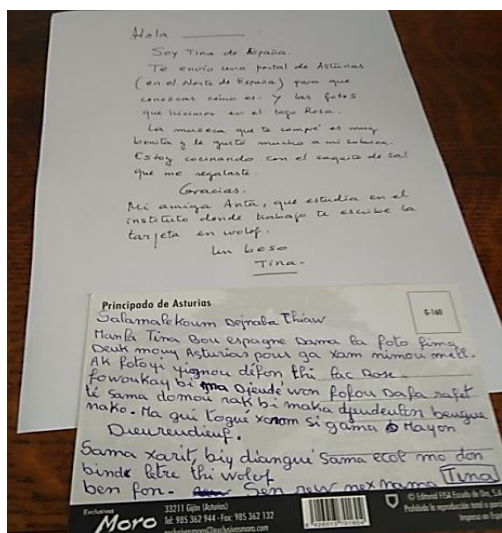 Hola
Soy Tina de España.
Te envío una postal de Asturias
(en el Norte de España) para que
conozcas cómo es. Y las fotos
que hicimos en el lago Rosa.
La muñeca que te compré es muy
bonita y le gustó mucho a mi sobrina.
Estoy cocinando con el saquito de sal
que me regalaste.
Gracias.
Mi amiga Anta, que estudia en el
instituto donde trabajo te escribe la
tarjeta en wolof.
Un beso
Tina.
Principado de Asturias
G-160
Salamalekoum Dejnaba Thiaw
Manla Tina Bou espagne Dama la foto
Deuk mouy Asturias pour ga xam nimou mell.
Ak fotoyi yugnou difon thi lac Rose.
fowoukay bi ma Djeudé won fofou Dafa rafet
té sama domou rak bi maka djeudeulon beugue
nako. Ma gui togué xorom si gama Mayon
Dieureudieuf.
Sama xarit, biy diangué sama ecol mo don
binde letre thi wolof
ben fon. Sen
Tina
Exclusivas
Moro
33211 Gijón (Asturias)
Tel: 985 362 944 - Fax: 985 362 132
exclusivasmoro@exclusivasmoro.com
© Editorial FISA Escudo de Oro, S.
Prohibida la reproducción total o
Impreso en